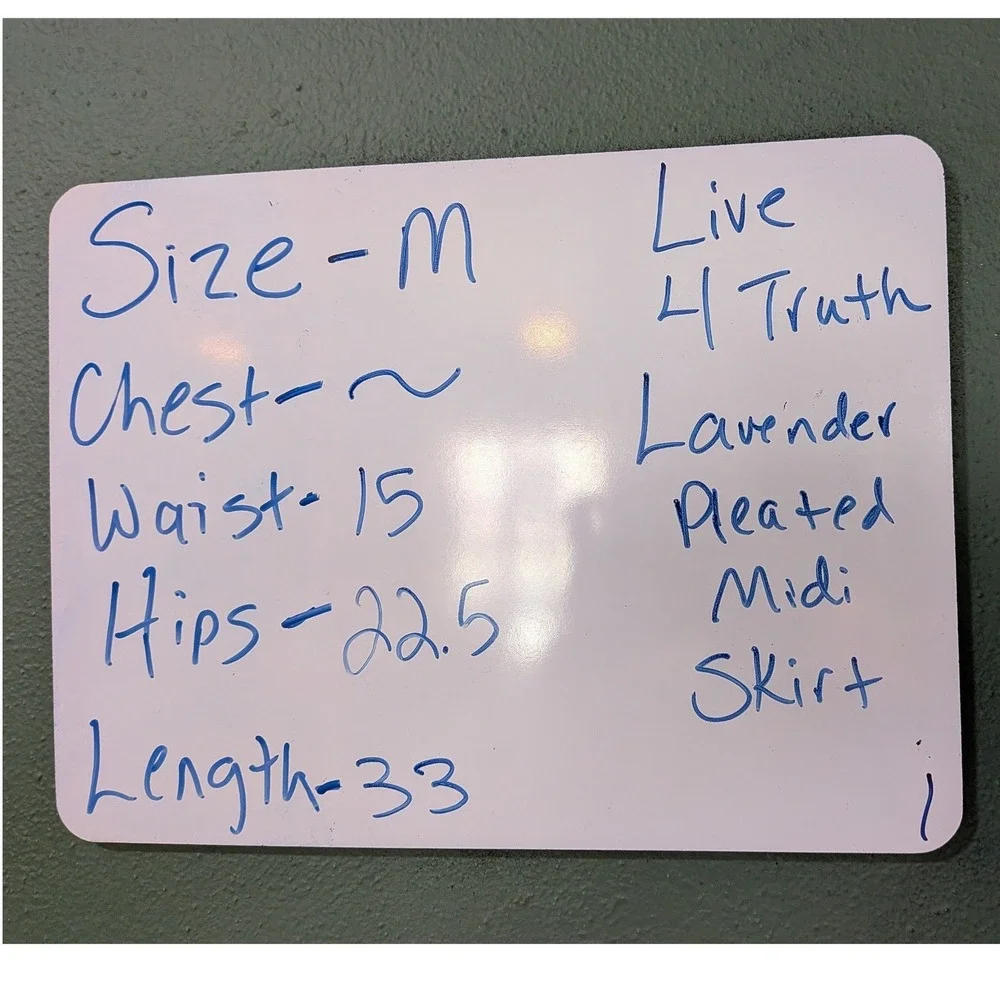 Size - M
Chest - ~
Waist - 15
Hips - 22.5
Length - 33
Live
4 Truth
Lavender
Pleated
Midi
Skirt
1